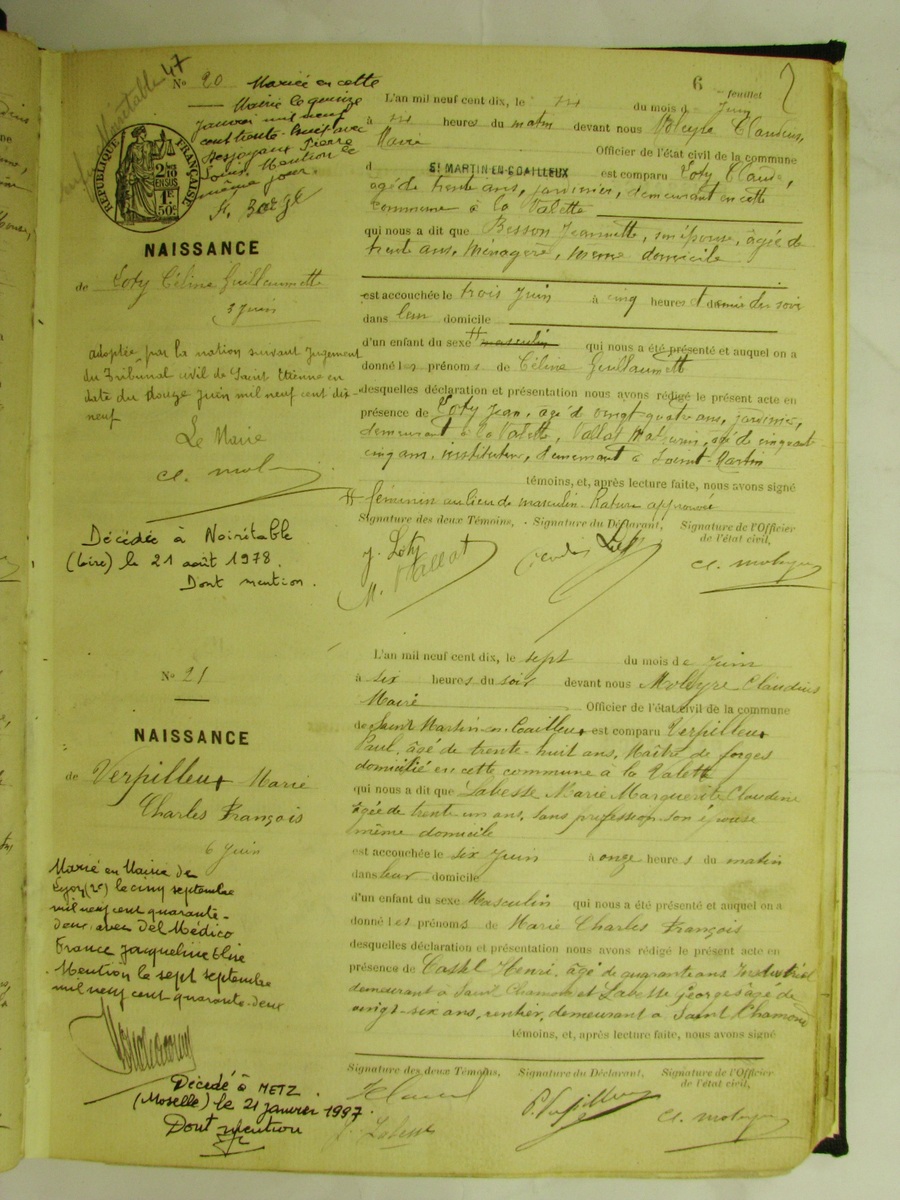 47
Nº 20 Mariée en cette
Mairie le quinze
Janvier mil neuf
cent trente-huit avec
Desjoyaux Pierre
Louis. Mention le
même jour.
RÉPUBLIQUE FRANÇAISE
2/10 EN SUS
1F 50c
NAISSANCE
de Loty Céline Guillaumette
3 Juin
adoptée par la nation suivant Jugement
du Tribunal civil de Saint Etienne en
date du douze Juin mil neuf cent dix-
neuf
Le Maire
Décédée à Noirétable
(Loire) le 21 août 1978.
Dont mention.
6 feuillet
L'an mil neuf cent dix, le six du mois de Juin
à six heures du matin devant nous Claudius,
Maire Officier de l'état civil de la commune
d St MARTIN-EN-COAILLEUX est comparu Loty Claude,
âgé de trente ans, jardinier, demeurant en cette
commune à la Valette
qui nous a dit que Besson Jeannette, son épouse, âgée de
trente ans, Ménagère, même domicile
est accouchée le trois Juin à cinq heures et demie du soir
dans leur domicile
d'un enfant du sexe # masculin qui nous a été présenté et auquel on a
donné les prénoms de Céline Guillaumette
desquelles déclaration et présentation nous avons rédigé le présent acte en
présence de Loty Jean, âgé de vingt-quatre ans, jardinier,
demeurant à la Valette, Vallat Mathurin, âgé de cinquante
cinq ans, instituteur, demeurant à Saint-Martin
témoins, et, après lecture faite, nous avons signé
# féminin au lieu de masculin. Rature approuvée
Signature des deux Témoins, Signature du Déclarant, Signature de l'Officier
de l'état civil,
J. Loty
M. Vallat
Nº 21
NAISSANCE
de Verpilleux Marie
Charles François
6 Juin
Marié en Mairie de
Lyon (2e) le cinq septembre
mil neuf cent quarante-
deux avec Del Médico
France Jacqueline Elise
Mention le sept septembre
mil neuf cent quarante-deux
Décédé à METZ
(Moselle) le 21 janvier 1997.
Dont mention
L'an mil neuf cent dix, le sept du mois de Juin
à six heures du soir devant nous Claudius
Maire Officier de l'état civil de la commune
de Saint Martin-en-Coailleux est comparu Verpilleux
Paul, âgé de trente-huit ans, Maître de forges
domicilié en cette commune à la Valette
qui nous a dit que Labesse Marie Marguerite Claudine
âgée de trente un ans, sans profession son épouse
même domicile
est accouchée le six Juin à onze heures du matin
dans leur domicile
d'un enfant du sexe Masculin qui nous a été présenté et auquel on a
donné les prénoms de Marie Charles François
desquelles déclaration et présentation nous avons rédigé le présent acte en
présence de Castel Henri, âgé de quarante ans Industriel
demeurant à Saint Chamond et Labesse Georges âgé de
vingt-six ans, rentier, demeurant à Saint Chamond
témoins, et, après lecture faite, nous avons signé
Signature des deux Témoins, Signature du Déclarant, Signature de l'Officier
de l'état civil,
P. Verpilleux
G. Labesse